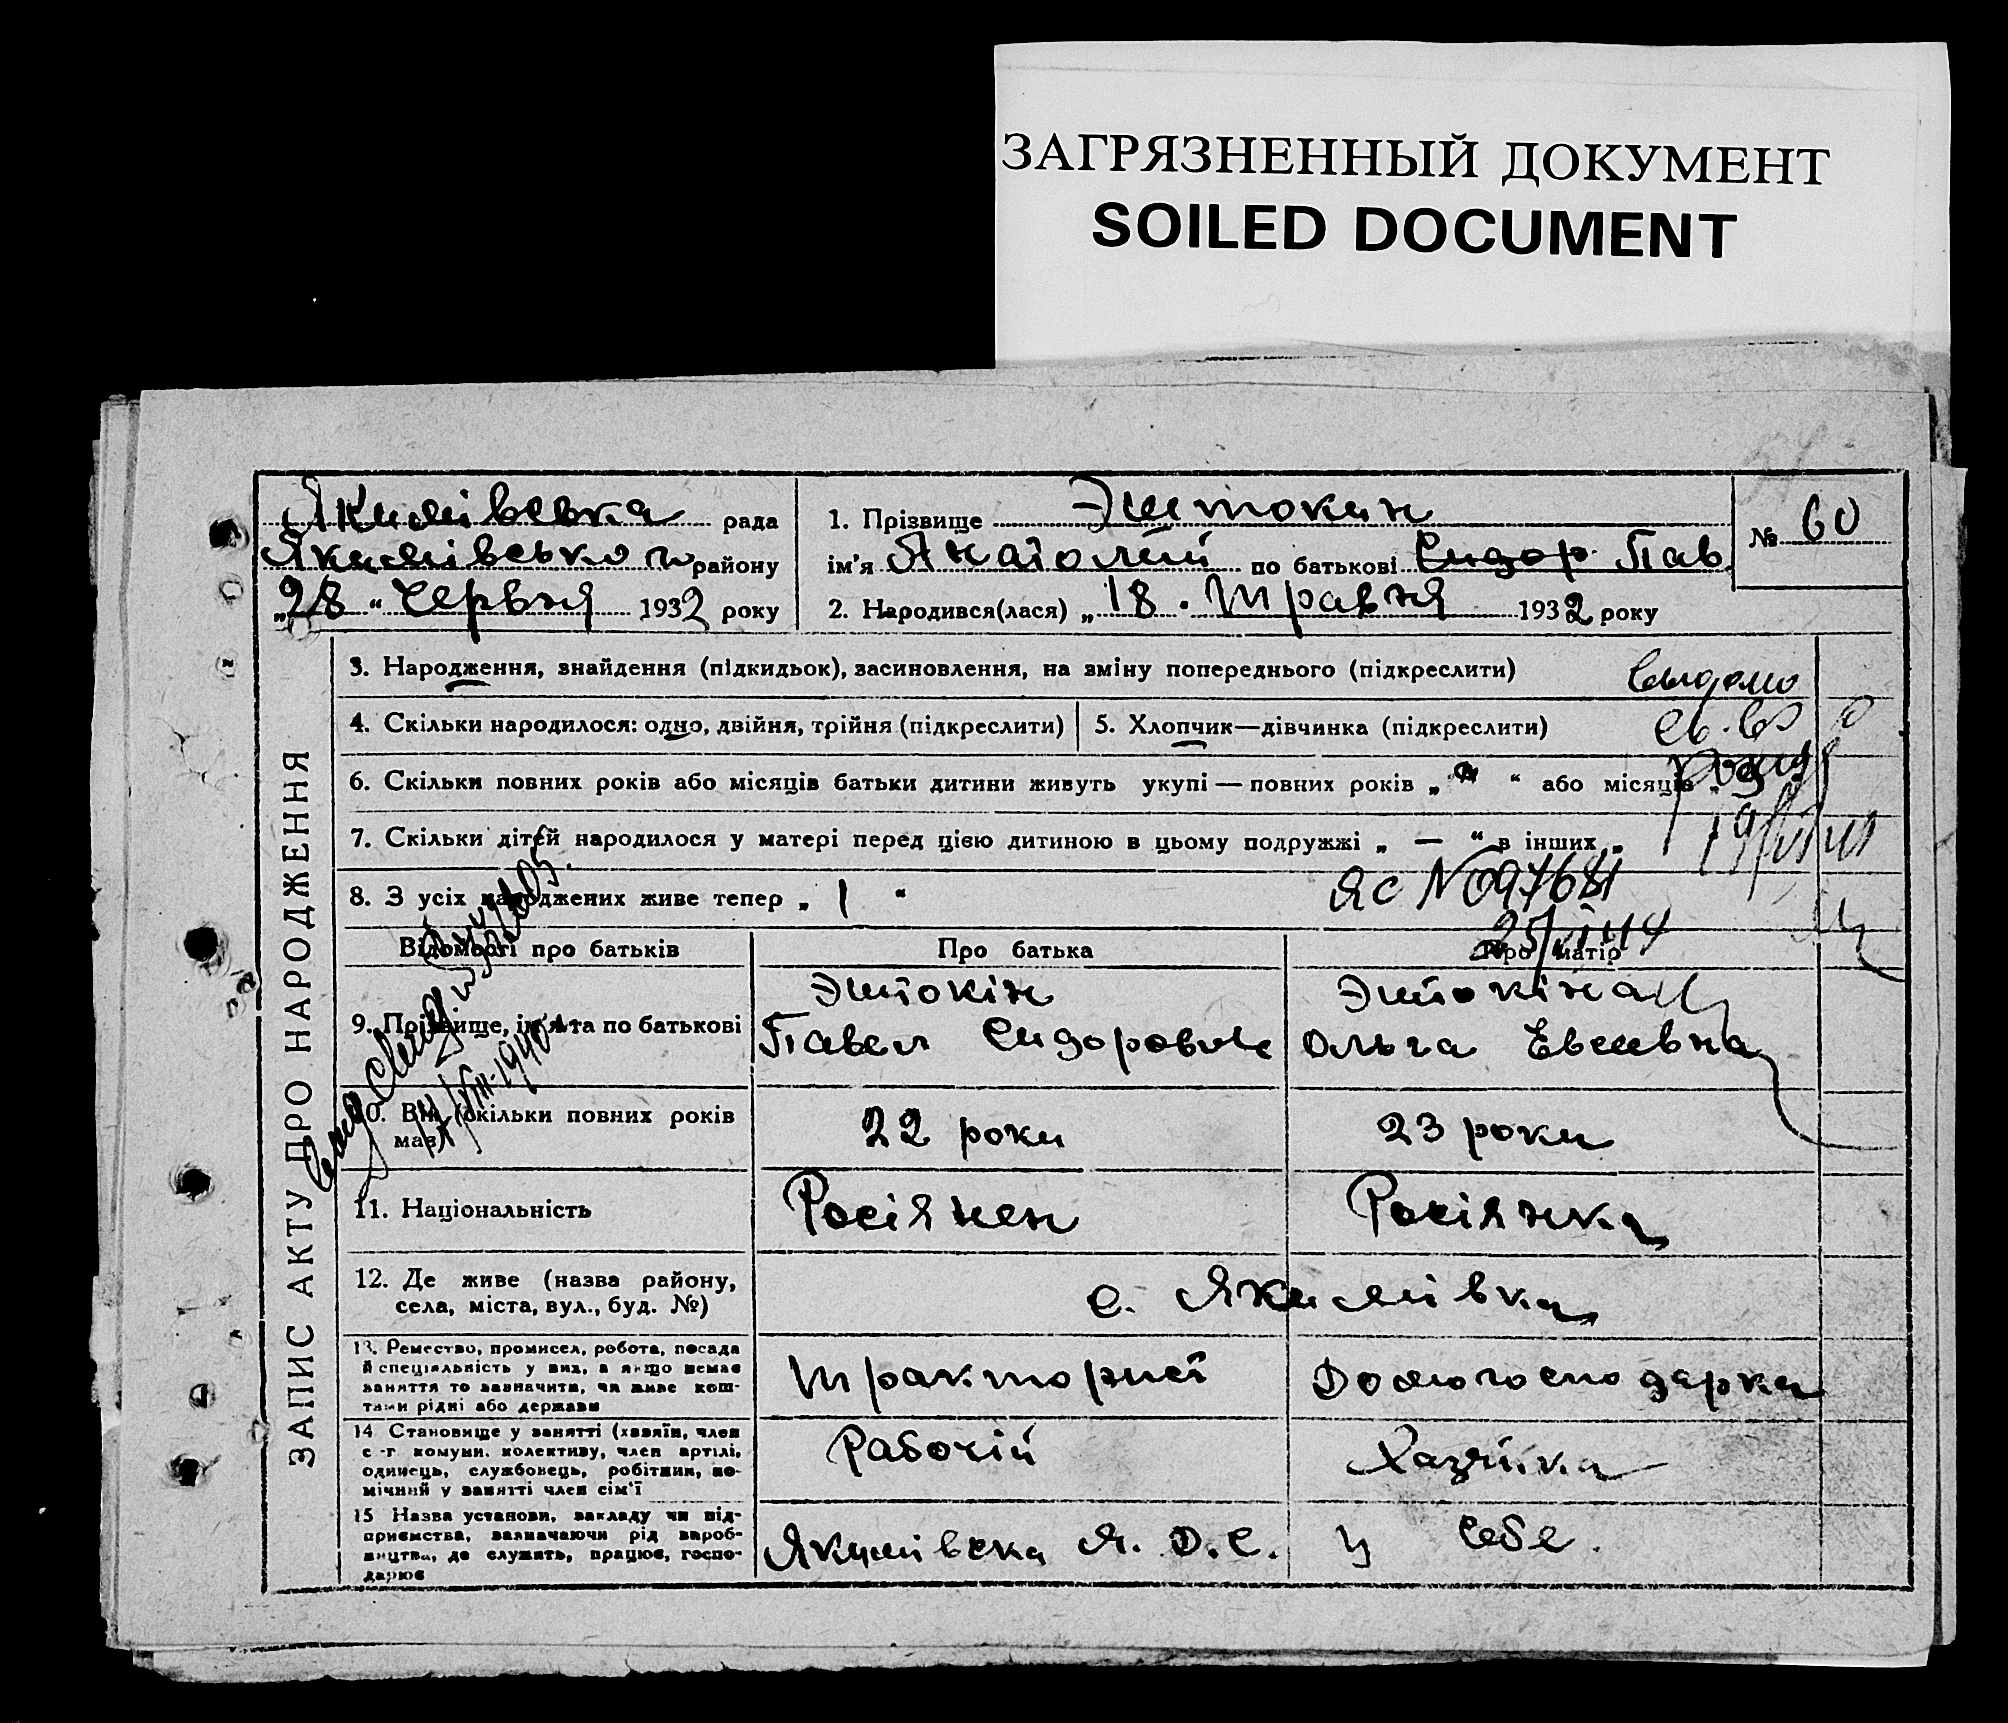 ЗАГРЯЗНЕННЫЙ ДОКУМЕНТ
SOILED DOCUMENT
Якимівська рада
Якимівського району
„28“ Червня 1932 року
1. Прізвище Эштокин
ім'я Анатолий по батькові Сидор. Пав.
2. Народився(лася) „18. Травня 1932 року
№ 60
ЗАПИС АКТУ ПРО НАРОДЖЕННЯ
3. Народження, знайдення (підкидьок), засиновлення, на зміну попереднього (підкреслити)
4. Скільки народилося: одно, двійня, трійня (підкреслити)
5. Хлопчик—дівчинка (підкреслити)
6. Скільки повних років або місяців батьки дитини живуть укупі — повних років „ “ або місяців „
7. Скільки дітей народилося у матері перед цією дитиною в цьому подружжі „ — “ в інших „
8. З усіх народжених живе тепер „ 1 “
ЯС №097681
Відомості про батьків
Про батька
Про матір
9. Прізвище, ім'я та по батькові
Эштокін
Павел Сидорович
Эштокіна
Ольга Евсеевна
10. Вік (скільки повних років має)
22 роки
23 роки
11. Національність
Росіянен
Росіянка
12. Де живе (назва району, села, міста, вул., буд. №)
с. Якимівка
13. Ремество, промисел, робота, посада
й спеціяльність у них, а якщо немає
заняття то зазначити, чи живе кош-
тами рідні або держави
Тракторист
Домогосподарка
14. Становище у занятті (хазяїн, член
с.-г. комуни, колективу, член артілі,
одинець, службовець, робітник, по-
мічний у занятті член сім'ї
Рабочій
Хазяйка
15 Назва установи, закладу чи під-
приємства, зазначаючи рід вироб-
ництва, де служить, працює, госпо-
дарює
Якимівска Я. Д. С.
У себе.